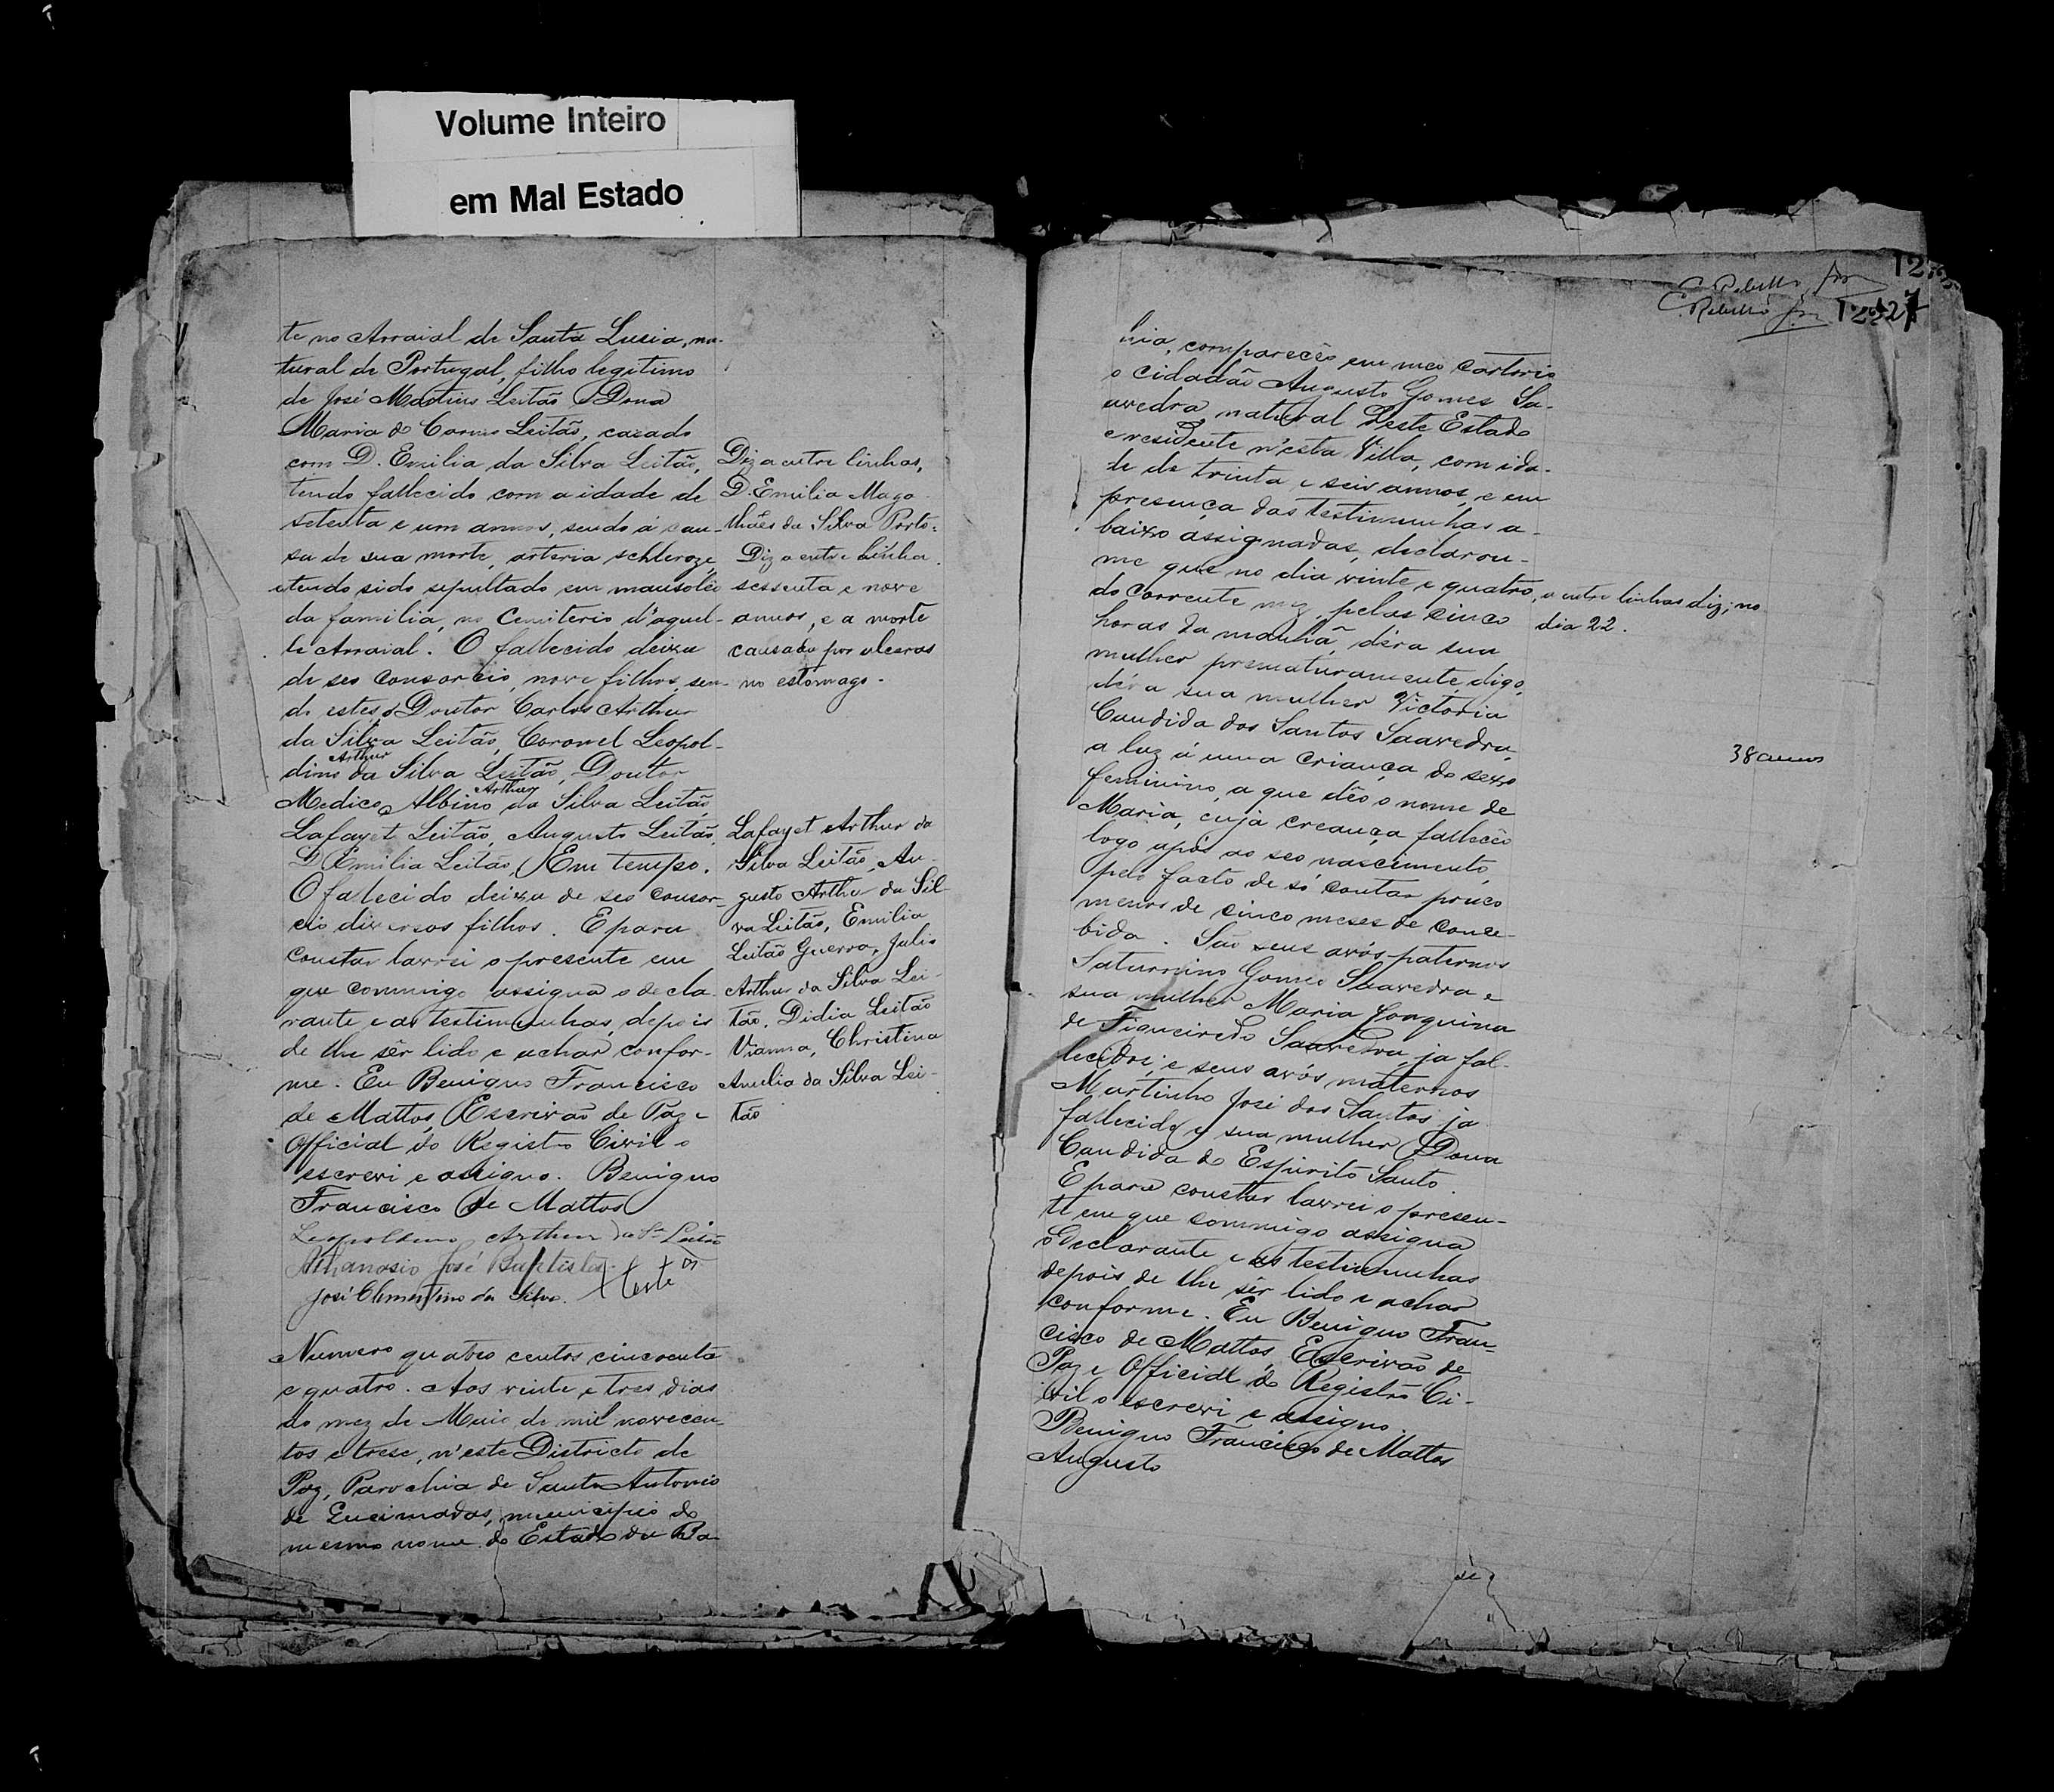 Volume Inteiro
em Mal Estado
te no Arraial de Santa Lusia, na-
tural de Portugal, filho legitimo
de José Martins Leitão e Dona
Maria do Carmo Leitão, casado
com D. Emilia da Silva Leitão,
tendo fallecido com a idade de
setenta e um annos, sendo á cau-
sa de sua morte, arteria schleroze,
e tendo sido sepultado em mausoléo
da familia, no Cemiterio d'aquel-
le Arraial. O fallecido deixa
de seo consorcio, nove filhos, sen-
do estes o Doutor Carlos Arthur
da Silva Leitão, Coronel Leopol-
dino Arthur da Silva Leitão, Doutor
Medico Albino Arthur da Silva Leitão,
Lafayet Leitão, Augusto Leitão,
D. Emilia Leitão, Em tempo.
O fallecido deixa de seo consor-
cio diversos filhos. E para
constar lavrei o presente em
que commigo assigna o decla-
rante, e as testimunhas, depois
de lhe sêr lido e achar confor-
me. Eu Benigno Francisco
de Mattos, Escrivão de Paz e
Official do Registro Civil o
escrevi e assigno. Benigno
Francisco de Mattos
Leopoldino Arthur da Sª Leitão
Athanasio José Baptista
José Clementino da Silva.
Diz a entre linhas,
D. Emilia Maga-
lhães da Silva Porto.
Diz a entre linha
sessenta e nove
annos, e a morte
causada por ulceras
no estomago.
Lafayet Arthur da
Silva Leitão, Au-
gusto Arthur da Sil-
va Leitão, Emilia
Leitão Guerra, Julio
Arthur da Silva Lei-
tão, Didia Leitão
Vianna, Christina
Amelia da Silva Lei-
tão
Numero quatro centos cincoenta
e quatro. Aos vinte e tres dias
do mez de Maio de mil novecen-
tos e trese, n'este Districto de
Paz, Parochia de Santo Antonio
de Queimadas, municipio do
mesmo nome do Estado da Ba-
C. Rebello
C. Rebello
127
hia, compareceo em meo cartorio
o cidadão Augusto Gomes Sa-
avedra, natural deste Estado
e residente n'esta Villa, com ida-
de de trinta e seis annos, e em
presença das testimunhas a-
baixo assignadas, declarou-
me que no dia vinte e quatro,
do corrente mez, pelas cinco
horas da manhã, déra sua
mulher prematuramente, digo,
déra sua mulher Victoria
Candida dos Santos Saavedra,
a luz á uma criança do sexo
feminino, a que dêo o nome de
Maria, cuja creança fallecêo
logo após ao seo nascimento,
pelo facto de só contar pouco
menos de cinco meses de conce-
bida. São seus avós paternos
Saturnino Gomes Saavedra e
sua mulher Maria Joaquina
de Figueiredo Saavedra, ja fal-
lecidos; e seus avós maternos
Martinho José dos Santos ja
fallecido e sua mulher Dona
Candida do Espirito Santo.
E para constar lavrei o presen-
te em que commigo assigna
o declarante e as testimunhas
depois de lhe sêr lido e achar
conforme. Eu Benigno Fran-
cisco de Mattos, Escrivão de
Paz e Official do Registro Ci-
vil o escrevi e assigno.
Benigno Francisco de Mattos
Augusto
a entre linhas diz; no
dia 22.
38 annos